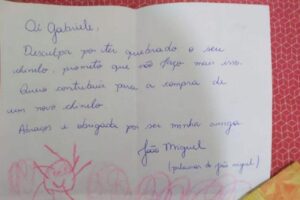 Oi Gabriele,
Desculpa por ter quebrado o seu
chinelo, prometo que não faço mais isso.
Quero contribuir para a compra de
um novo chinelo
Abraços e obrigada por ser minha amiga
João Miguel
(palavras do João Miguel)